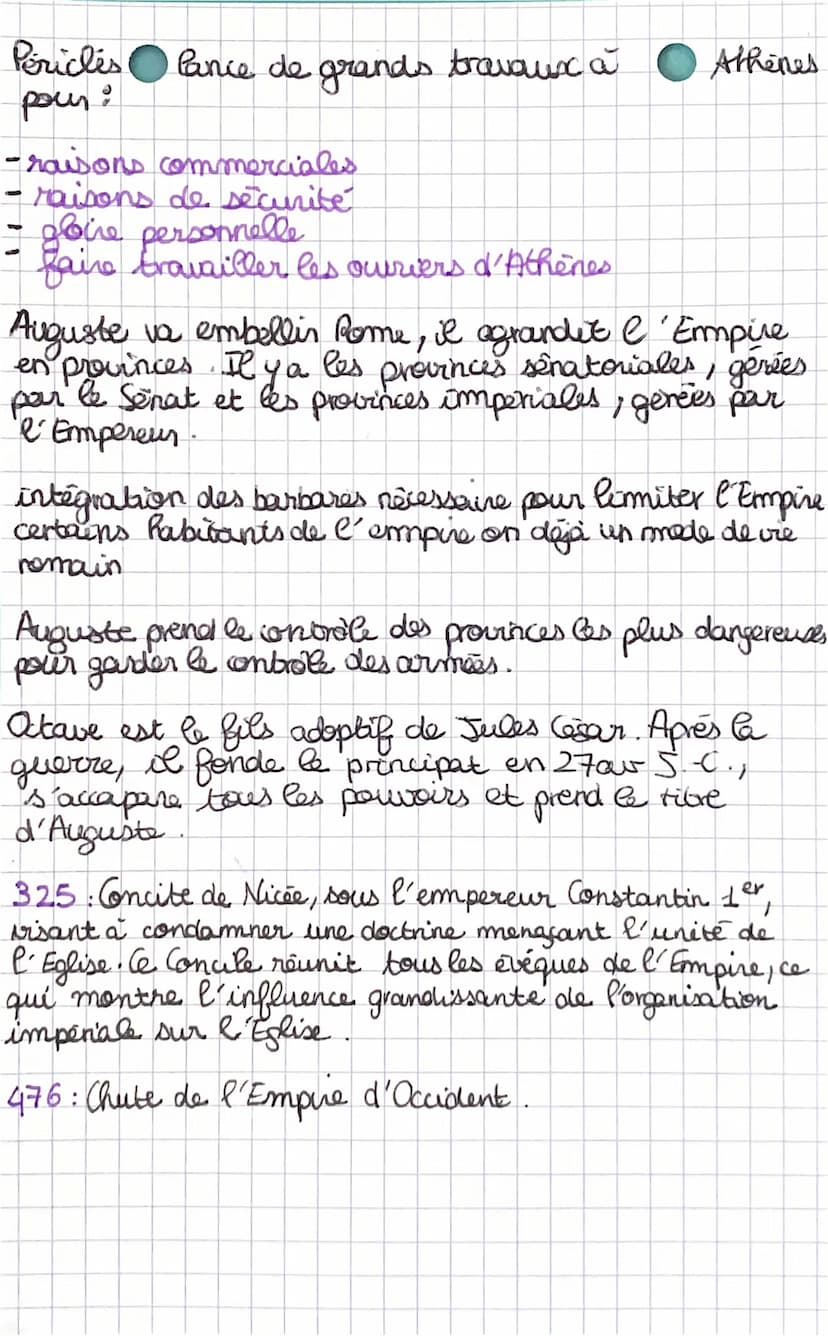 Périclès lance de grands travaux à Athènes
pour :
- raisons commerciales
- raisons de sécurité
- gloire personnelle
- faire travailler les ouvriers d'Athènes
Auguste va embellir Rome, il agrandit l'Empire
en provinces. Il y a les provinces sénatoriales, gérées
par le Sénat et les provinces impériales, gérées par
l'Empereur.
intégration des barbares nécessaire pour limiter l'Empire
certains habitants de l'empire on déjà un mode de vie
romain
Auguste prend le contrôle des provinces les plus dangereuses
pour garder le contrôle des armées.
Octave est le fils adoptif de Jules César. Après la
guerre, il fonde le principat en 27 av J.-C.,
s'accapare tous les pouvoirs et prend le titre
d'Auguste.
325 : Concile de Nicée, sous l'empereur Constantin 1er,
visant à condamner une doctrine menaçant l'unité de
l'Eglise. Ce Concile réunit tous les évêques de l'Empire, ce
qui montre l'influence grandissante de l'organisation
impériale sur l'Eglise.
476 : Chute de l'Empire d'Occident.